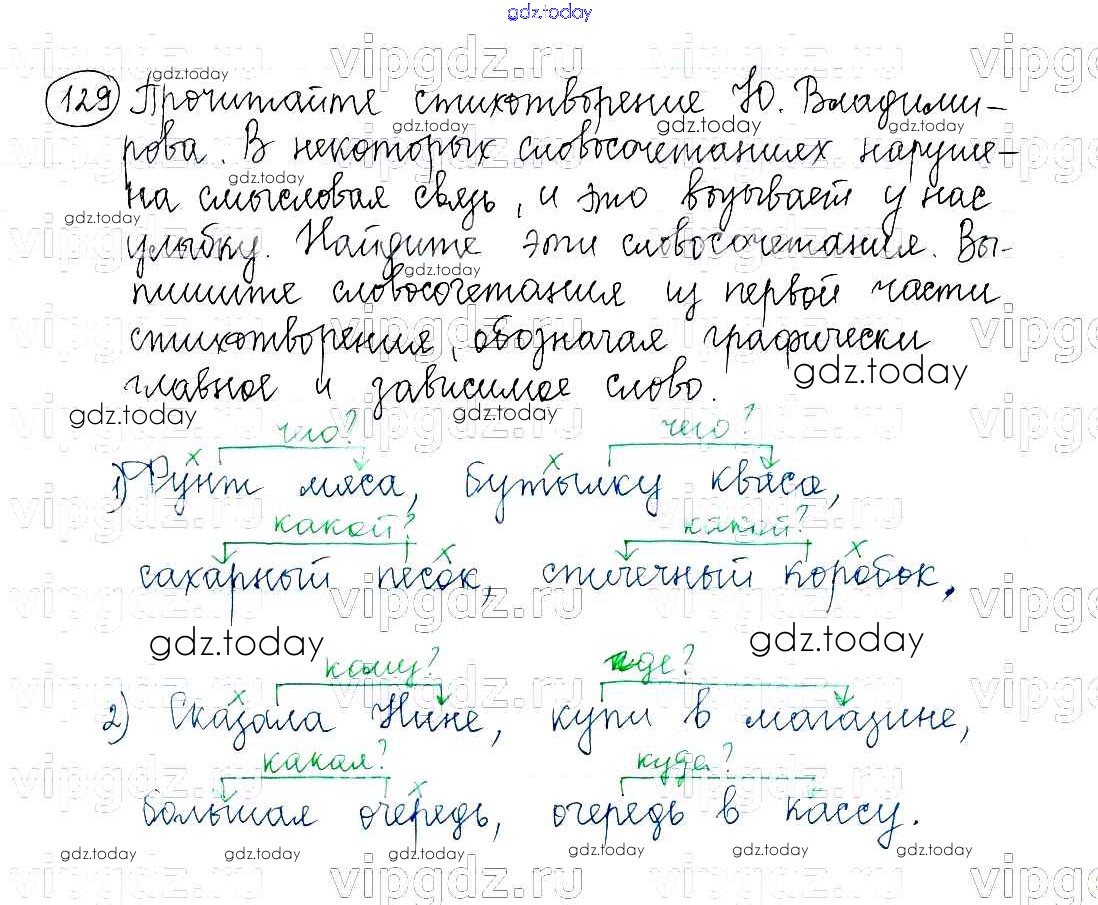 gdz.today
129 Прочитайте стихотворение Ю. Владими-
рова. В некоторых словосочетаниях наруше-
на смысловая связь, и это вызывает у нас
улыбку. Найдите эти словосочетания. Вы-
пишите словосочетания из первой части
стихотворения, обозначая графически
главное и зависимое слово.
чего? чего?
1) Фунт мяса, бутылку кваса,
какой? какой?
сахарный песок, спичечный коробок,
кому? где?
2) Сказала Нине, купи в магазине,
какая? куда?
большая очередь, очередь в кассу.